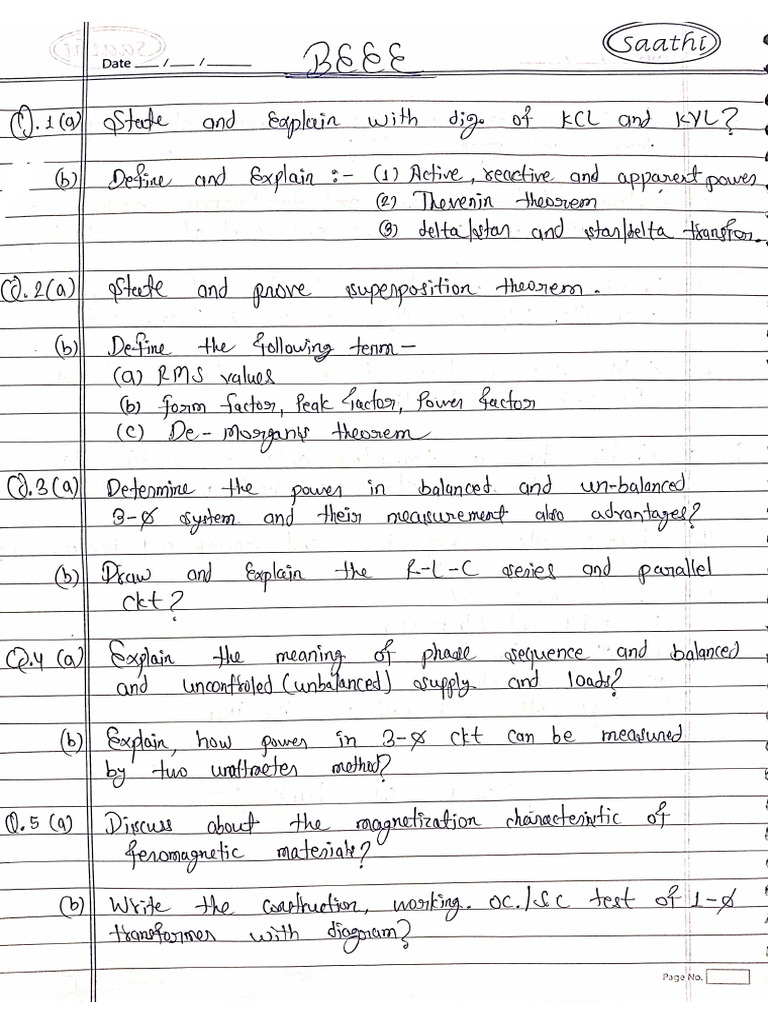 Saathi
Date ___/___/_____
BEEE
Q.1(a) State and Explain with dig. of KCL and KVL?
(b) Define and Explain :- (1) Active, reactive and apparent power
(2) Thevenin theorem
(3) delta/star and star/delta transfor.
Q.2(a) State and prove superposition theorem.
(b) Define the following term-
(a) RMS values
(b) form factor, Peak factor, Power factor
(c) De-Morgan's theorem
Q.3(a) Determine the power in balanced and un-balanced
3-φ system and their measurement also advantages?
(b) Draw and Explain the R-L-C series and parallel
ckt?
Q.4 (a) Explain the meaning of phase sequence and balanced
and uncontroled (unbalanced) supply and loads?
(b) Explain, how power in 3-φ ckt can be measured
by two wattmeter method?
Q.5 (a) Discuss about the magnetization characteristic of
feromagnetic materials?
(b) Write the construction, working. OC./SC test of 1-φ
transformer with diagram?
Page No.